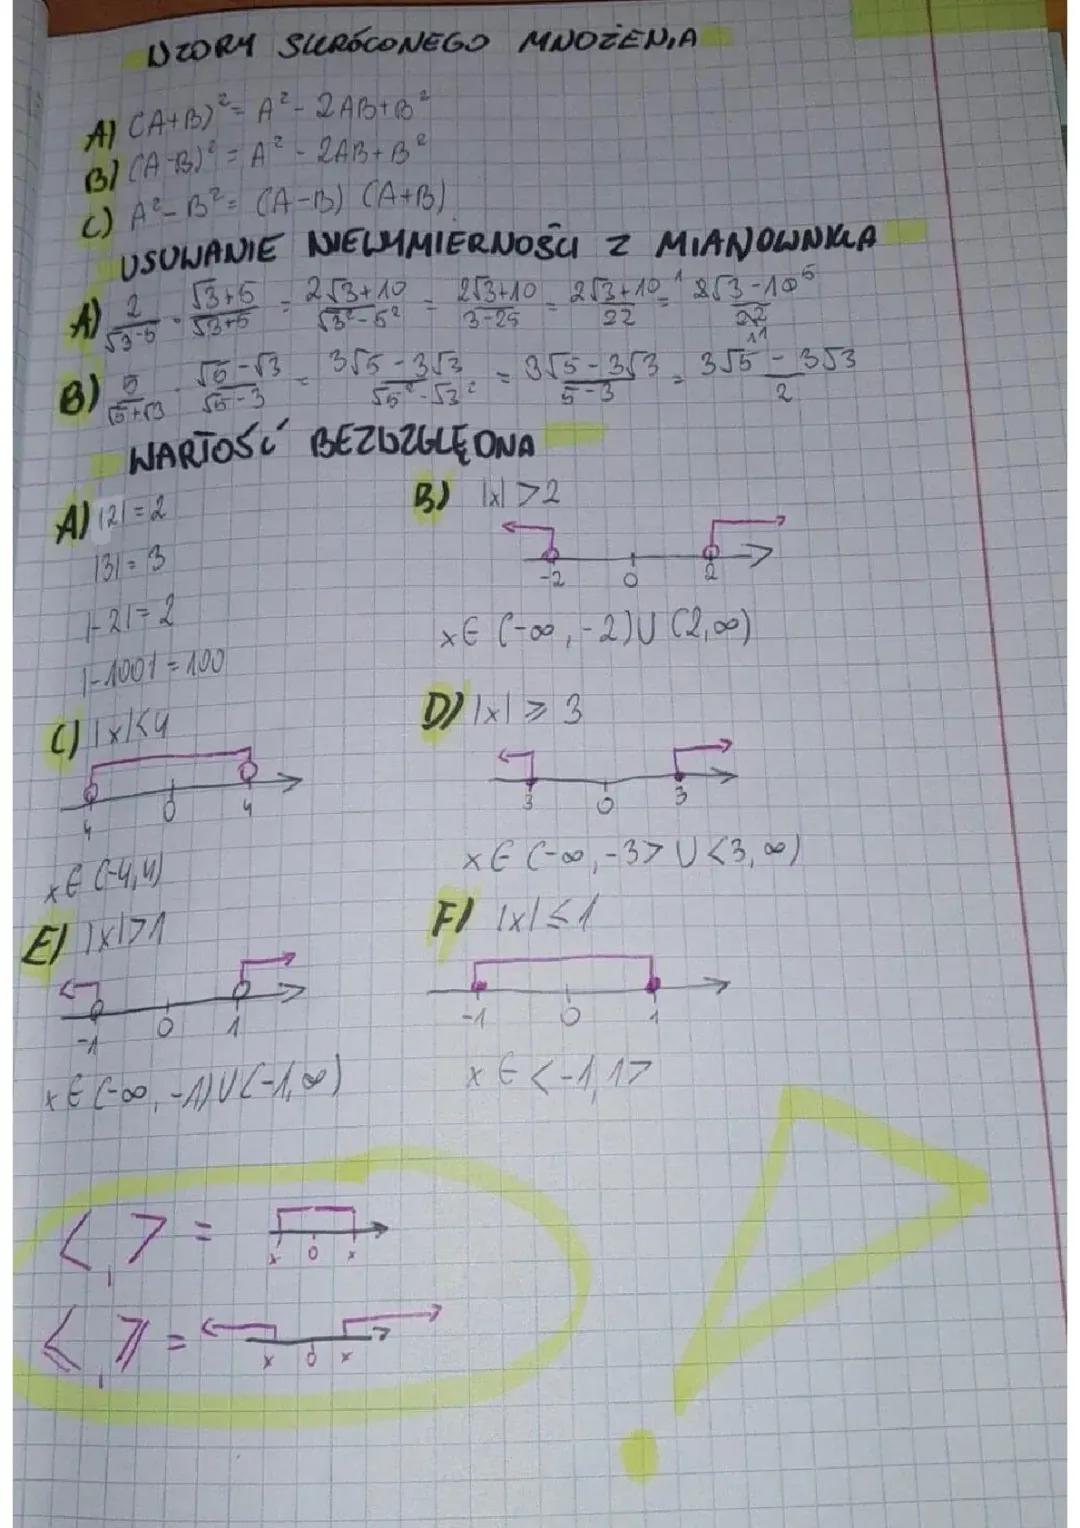 WZORY SKRÓCONEGO MNOŻENIA
A) (A+B)² = A² - 2AB+B²
B) (A-B)² = A² - 2AB+B²
C) A²-B² = (A-B) (A+B)
USUWANIE NIEWYMIERNOŚCI Z MIANOWNIKA
A) 2/√3-5 · √3+5/√3+5 = 2√3+10/√3²-5² = 2√3+10/3-25 = 2√3+10/22 = ¹2√3-10⁵/22 11
B) 5/√5+√3 · √5-√3/√5-3 = 3√5-3√3/√5²-√3² = 3√5-3√3/5-3 = 3√5-3√3/2
WARTOŚĆ BEZWZGLĘDNA
A) |2| = 2
|3| = 3
|-2| = 2
|-100| = 100
B) |x| > 2
-2 0 2
x∈ (-∞, -2) ∪ (2, ∞)
C) |x|<4
4 0 4
x∈ (-4,4)
D) |x| ⩾ 3
3 0 3
x∈ (-∞, -3> ∪ <3, ∞)
E) |x|>1
-1 0 1
x∈ (-∞, -1) ∪ (-1, ∞)
F) |x| ≤ 1
-1 0 1
x∈ <-1,1>
<, > = x 0 x
⩽, ⩾ = x 0 x